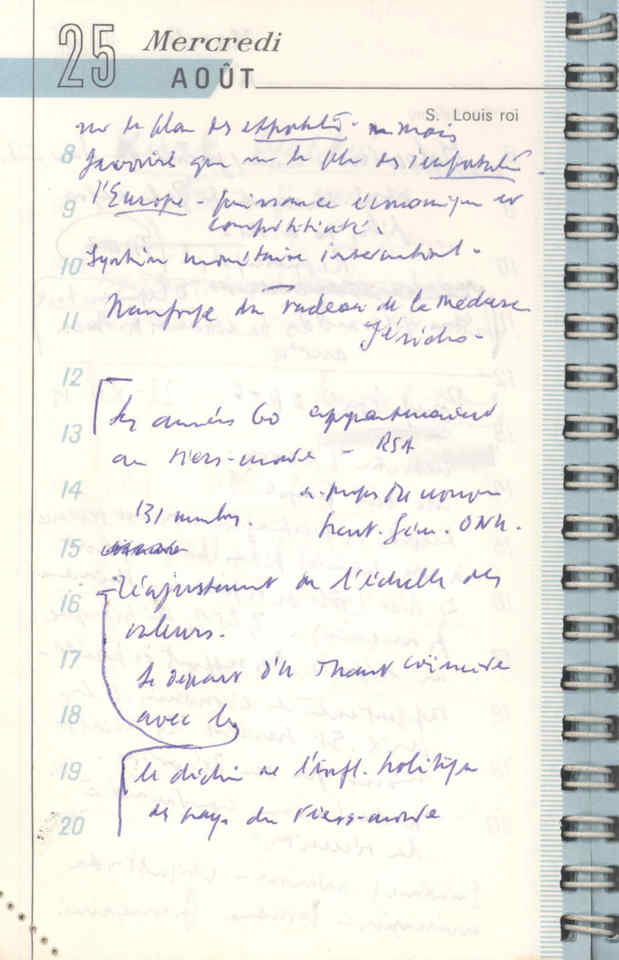 25 Mercredi
AOÛT
S. Louis roi
sur le plan des
8
que sur le plan des
9 l'Europe - puissance économique et
compétitivité.
10 Système monétaire international.
11 Naufrage du radeau de la Méduse
Jéricho -
12
13 Les années 60 appartenaient
au tiers-monde - RSA
14
131 membres. ONU.
15
16 Réajustement de l'échelle des
valeurs.
17 Le départ d'U Thant coïncide
18 avec le
19 le déclin de l'infl. politique
20 des pays du Tiers-monde